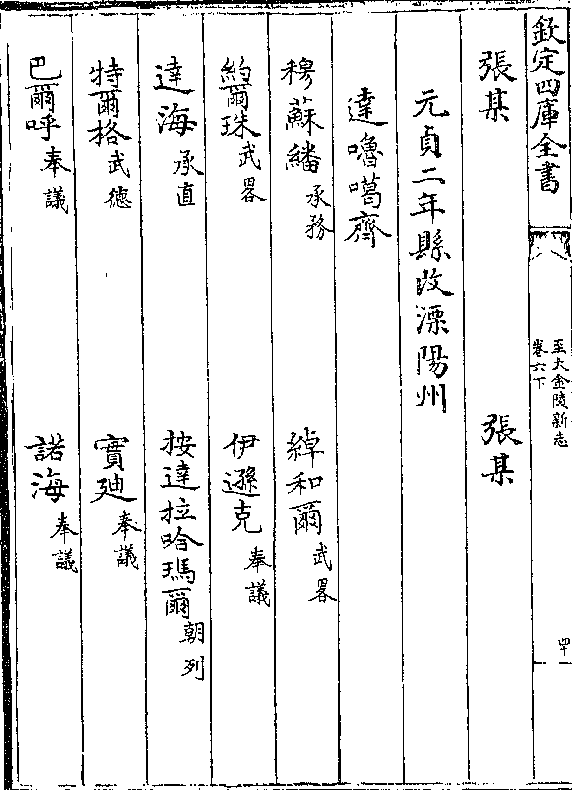 欽定四庫全書
至大金陵新志
卷六下
四十
張某 張某
元貞二年縣改溧陽州
達嚕噶齊
穆蘇繙承務 綽和爾武畧
約爾珠武畧 伊遜克奉議
達海承直 按達拉哈瑪爾朝列
特爾格武德 實廸奉議
巴爾呼奉議 諾海奉議